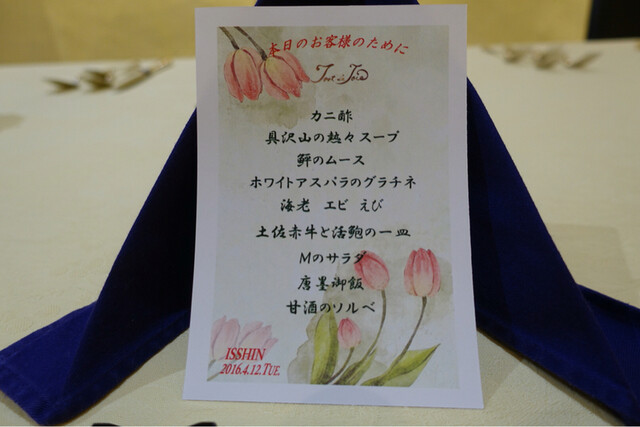 本日のお客様のために
カニ酢
具沢山の熱々スープ
鮃のムース
ホワイトアスパラのグラチネ
海老 エビ えび
土佐赤牛と活鮑の一皿
Mのサラダ
唐墨御飯
甘酒のソルベ
ISSHIN
2016.4.12.TUE.